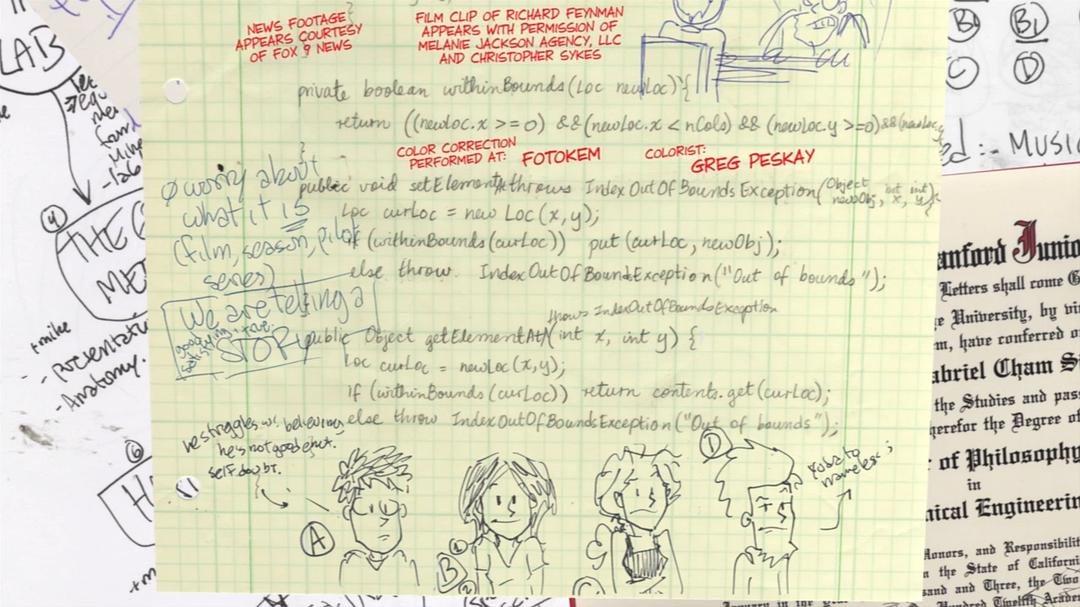 NEWS FOOTAGE
APPEARS COURTESY
OF FOX 9 NEWS
FILM CLIP OF RICHARD FEYNMAN
APPEARS WITH PERMISSION OF
MELANIE JACKSON AGENCY, LLC
AND CHRISTOPHER SYKES
private boolean withinBounds(Loc newLoc){
return ((newLoc.x >=0) &&(newLoc.x < nCols) && (newLoc.y >=0)&&(newLoc.y
}
COLOR CORRECTION
PERFORMED AT: FOTOKEM
COLORIST:
GREG PESKAY
public void setElement throws IndexOutOfBoundsException(Object newObj, int x, int y){
Loc curLoc = new Loc(x,y);
if (withinBounds(curLoc)) put (curLoc, newObj);
else throw. IndexOutOfBoundException("Out of bounds");
throws IndexOutOfBoundsException
public Object getElementAt(int x, int y) {
Loc curLoc = newLoc(x,y);
if (withinBounds(curLoc)) return contents.get(curLoc);
else throw IndexOutOfBoundsException("Out of bounds");
Ø worry about
what it is
(film, season, pilot
series)
We are telling a
good
satisfying
STORY
he struggles w. believing
he's not good enof.
self doubt.
A
B
1
2
D
LAB
4
THE
ME
+mike
- Presentat
- Anatomy.
6
H
+m
B1
B1
C
D
ed :- Music
anford Junio
Letters shall come G
e University, by vi
m, have conferred o
abriel Cham S
the Studies and pas
herefor the Degree of
of Philosophy
in
nical Engineerin
Honors, and Responsibilit
n the State of California
sand and Three, the Two
Hundred Twelfth Academ
January in the year